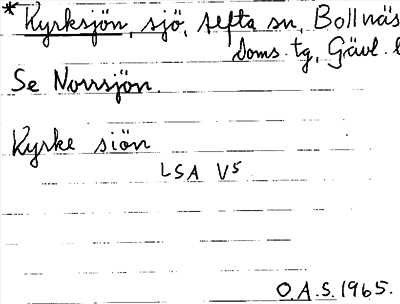 *Kyrksjön, sjö, Alfta sn, Bollnäs
Doms. tg, Gävl. l
Se Norrsjön.
Kyrke siön
LSA V5
O.A.S. 1965.